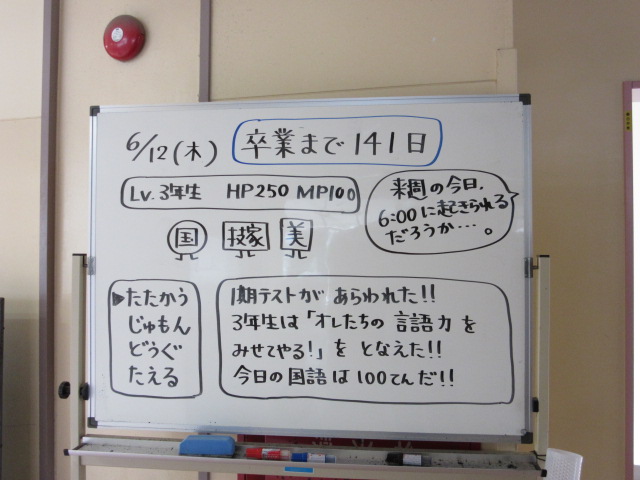 6/12(木) 卒業まで141日
Lv.3年生 HP250 MP100
来週の今日、
6:00に起きられる
だろうか…。
国 技家 美
▶たたかう
じゅもん
どうぐ
たえる
1期テストが あらわれた!!
3年生は「オレたちの 言語力 を
みせてやる!」を となえた!!
今日の国語は100てんだ!!